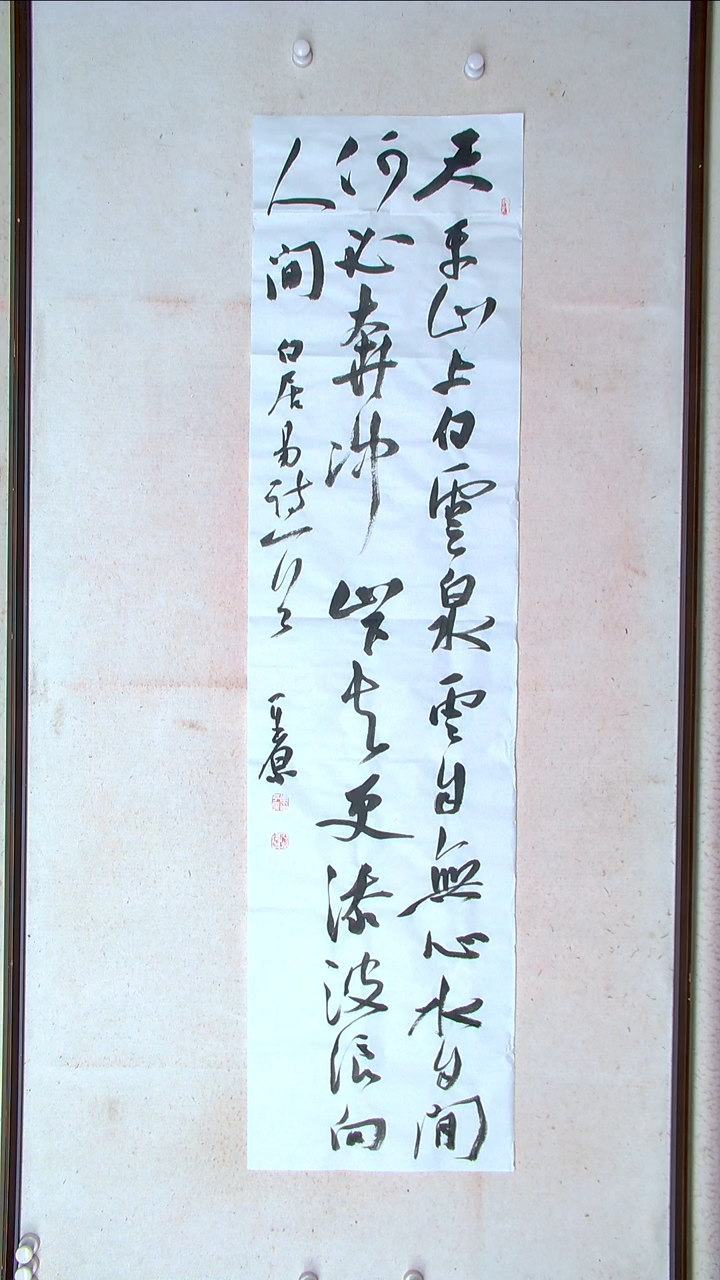 天平山上白雲泉雲自無心水自閒
何必奔沖山下去更添波浪向
人間 白居易詩一首